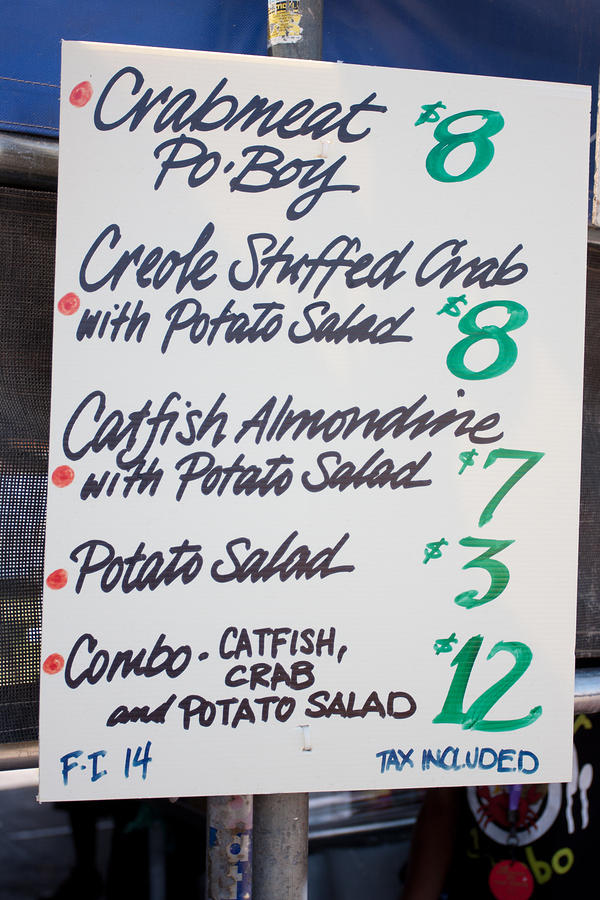 Crabmeat $8
Po-Boy
Creole Stuffed Crab
with Potato Salad $8
Catfish Almondine
with Potato Salad $7
Potato Salad $3
Combo - CATFISH, $12
CRAB
and POTATO SALAD
F.I. 14 TAX INCLUDED